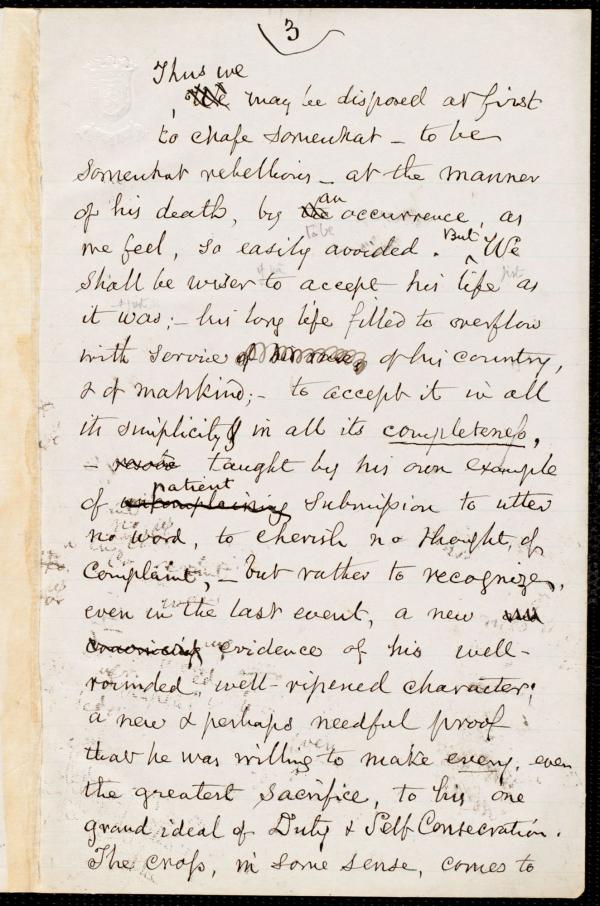 3
Thus we
We may be disposed at first
to chafe somewhat – to be
somewhat rebellious – at the manner
of his death, by the an occurrence, as
to be
we feel, so easily avoided. But We
shall be wiser to accept his life just as
it was; – his long life filled to overflow
with service of his country,
& of mankind; – to accept it in all
its simplicity & in all its completeness,
– taught by his own example
patient
of uncomplaining submission to utter
no word, to cherish no thought, of
complaint, – but rather to recognize,
even in the last event, a new
convincing evidence of his well-
rounded, well-ripened character;
a new & perhaps needful proof
that he was willing to make every, even
the greatest sacrifice, to his one
grand ideal of Duty & Self Consecration.
The cross, in some sense, comes to